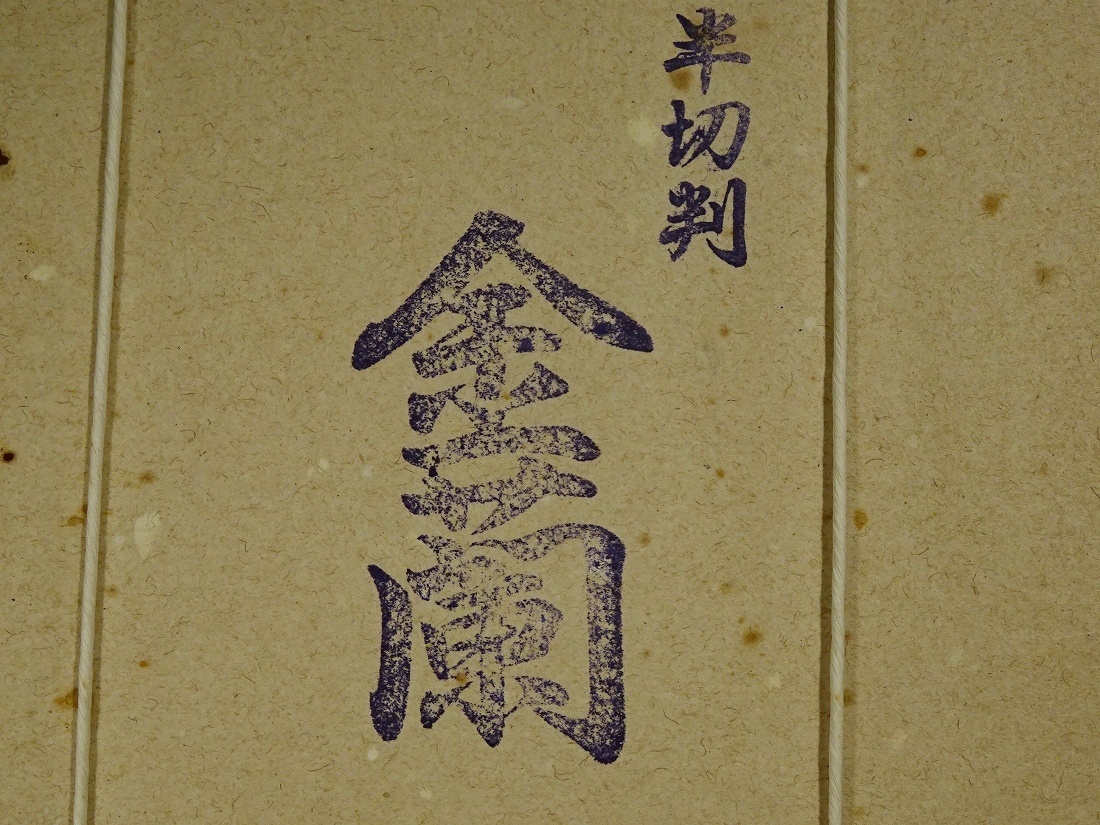 半切判
金蘭